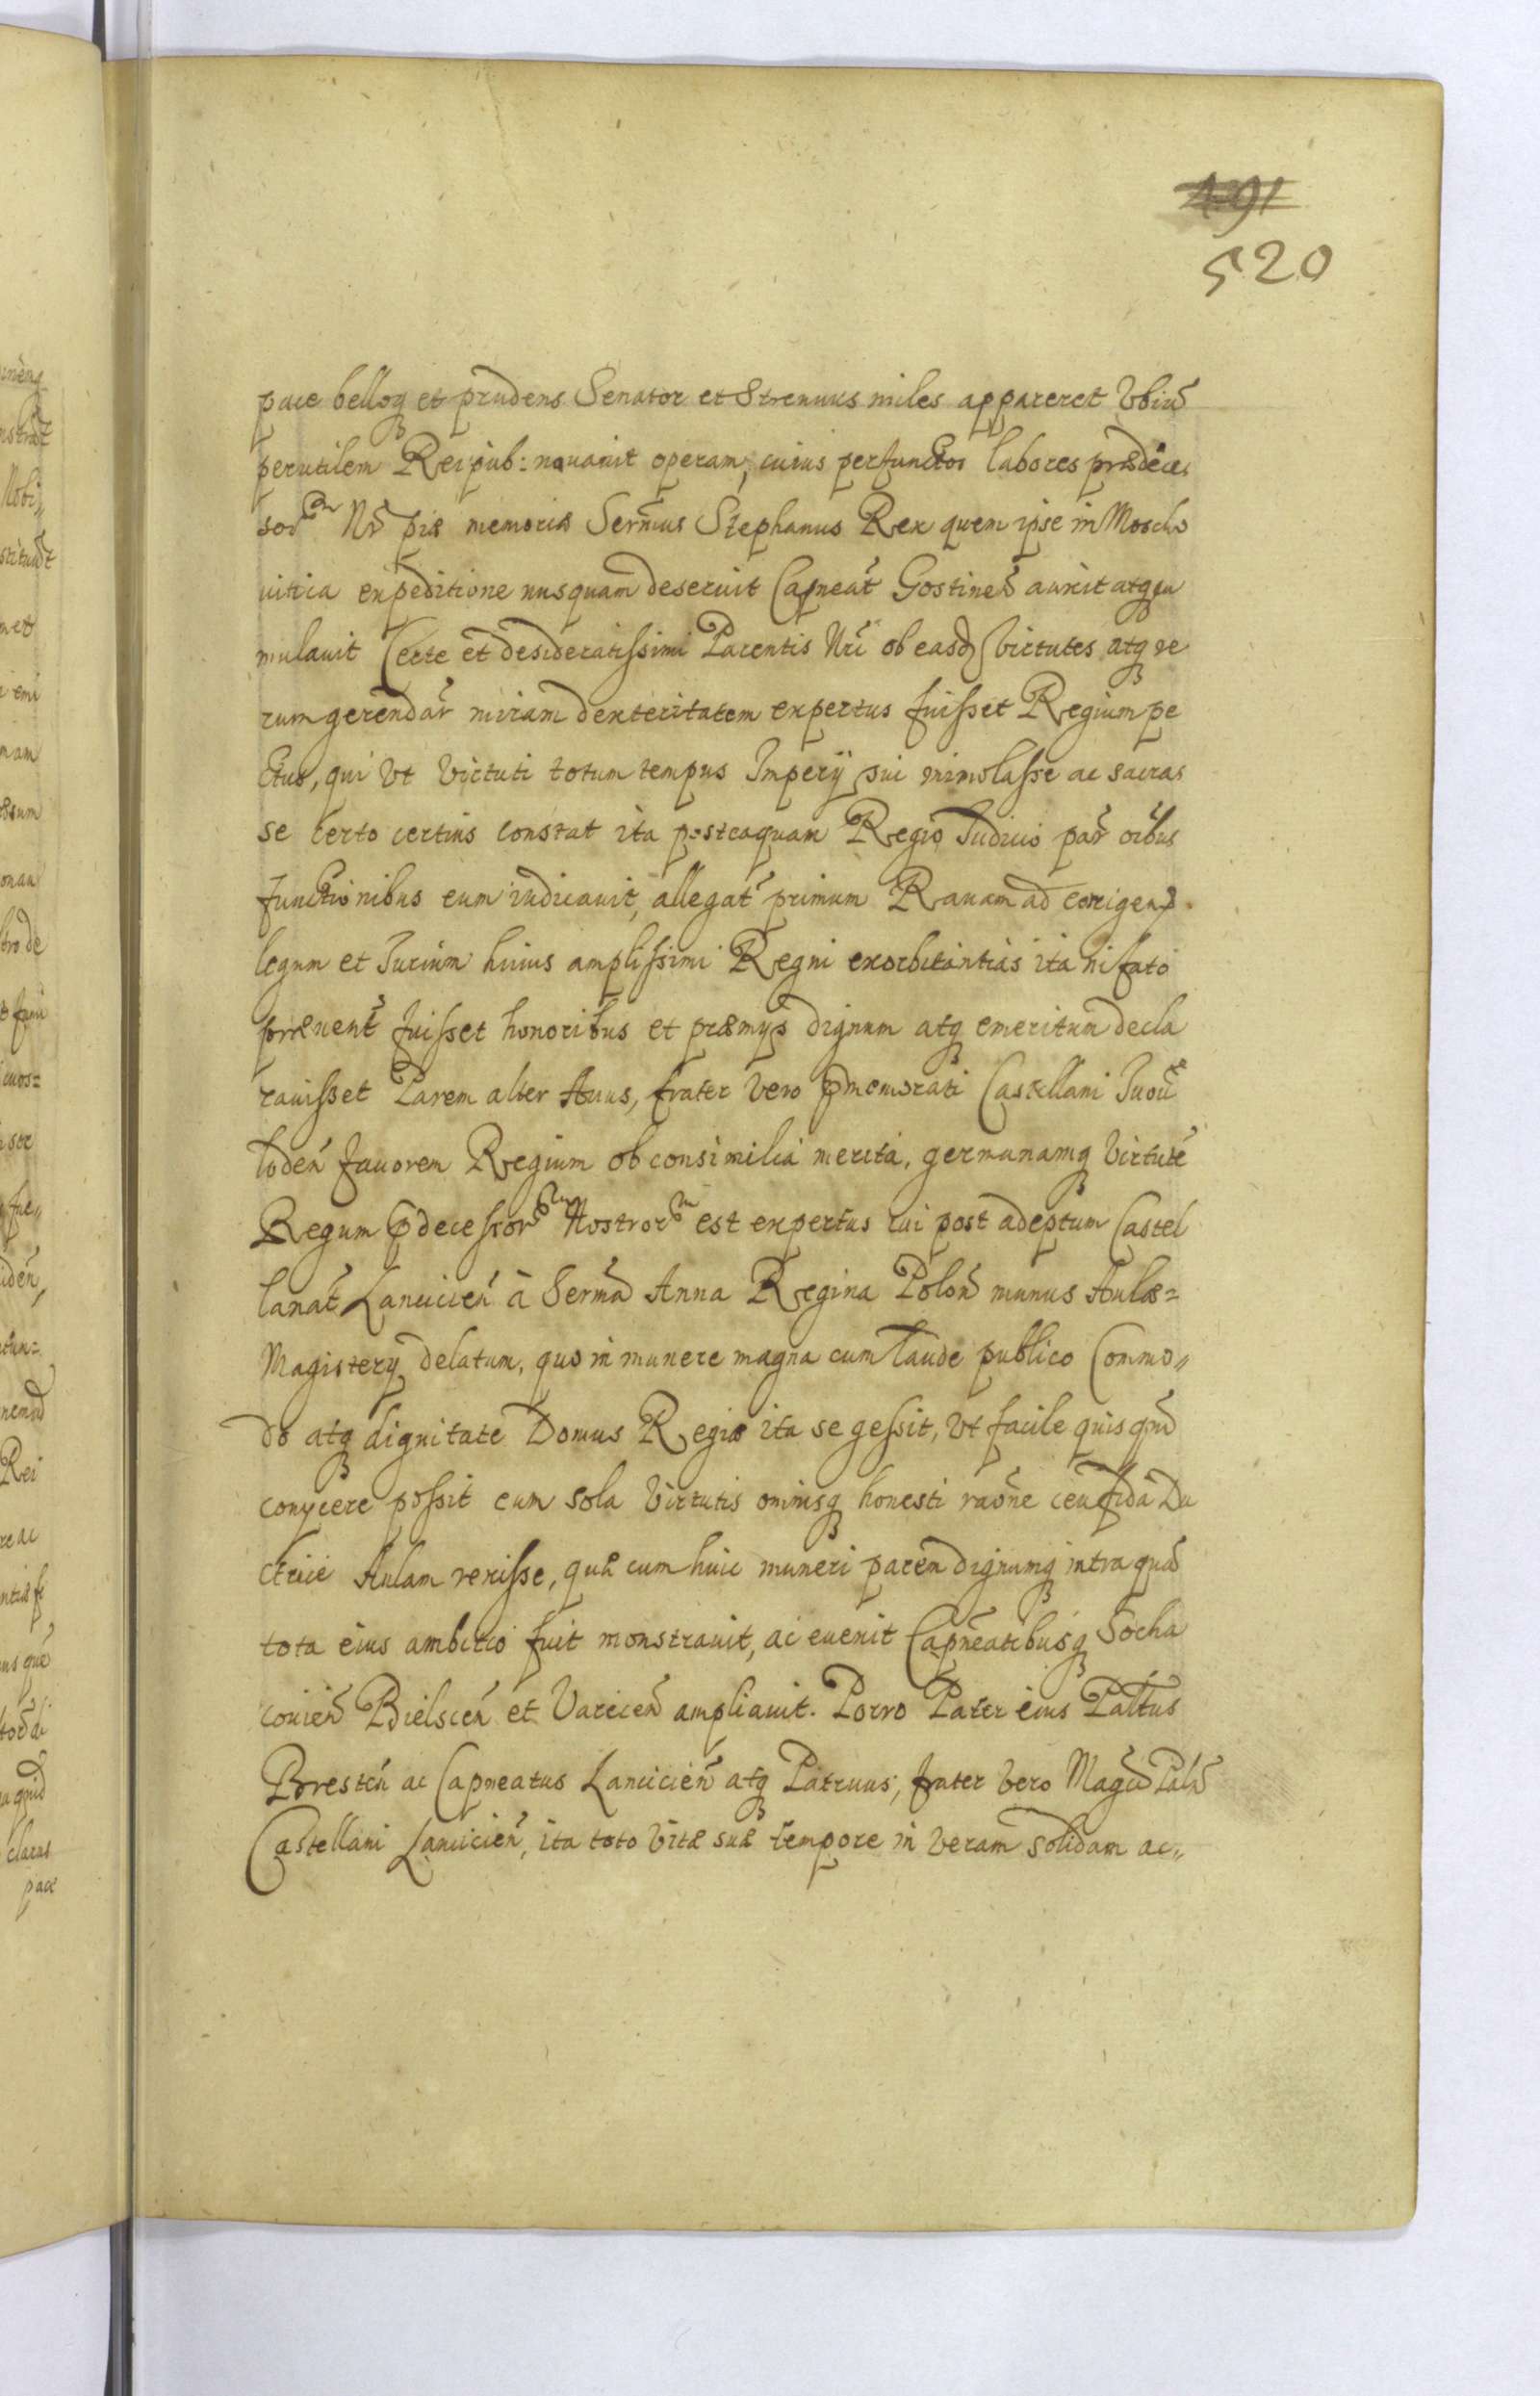 491
520
pace belloq₃ et prudens Senator et Strenuus miles appareret Vbiuis
perutilem Reipub: nauauit operam, cuius perfunctos labores prædeces
sor Nr̃ piæ memoriæ Serm̃us Stephanus Rex quem ipse in Moscho
uitica expeditione nusquam deseruit Capneat̃ Gostinen̄ auxit atq₃ cu
mulauit Certe et desideratissimi Parentis Nr̃i ob easd virtutes atq₃ re
rum gerendar̃ miram dexteritatem expertus fuisset Regium pe
ctus, qui Vt Virtuti totum tempus Imperÿ sui immolasse ac sacras
se Certo certius constat ita posteaquam Regio Judicio par̃ oĩbus
functionibus eum iudicauit, allegat̃ primum Rauam ad corigend
legum et Jurium huius amplissimi Regni exorbitantias ita ni fato
præuent̃ fuisset honoribus et præmÿs dignum atq₃ emeritum decla
rauisset Parem alter Auus, frater Vero p̄memorati Castellani Juou
loden̄ fauorem Regium ob consimilia merita, germanamq₃ Virtutẽ
Regum p̄decessorum Nostrorum est expertus cui post adeptum Castel
lanat̃ Lancicien̄ à Serm̃a Anna Regina Polon̄ munus Aulæ=
Magisterÿ delatum, quo in munere magna cum laude publico Commo„
do atq₃ dignitate Domus Regiæ ita se gessit, Vt facile quisqm̃
conÿcere possit eum sola Virtutis omnisq₃ honesti raõne ceu fida Du
ctrice Aulam rexisse, quæ cum huic muneri parem dignumq₃ intra quã
tota eius ambitio fuit monstrauit, ac euexit Capneatibusq₃ Socha
couien̄ Bielscen̄ et Varecen̄ ampliauit. Porro Pater eius Paltus
Bresten̄ ac Capneatus Lancicien̄ atq₃ Patruus, frater Vero Magci Palni
Castellani Lancicien̄, ita toto Vitæ suæ tempore in Veram solidam ac„